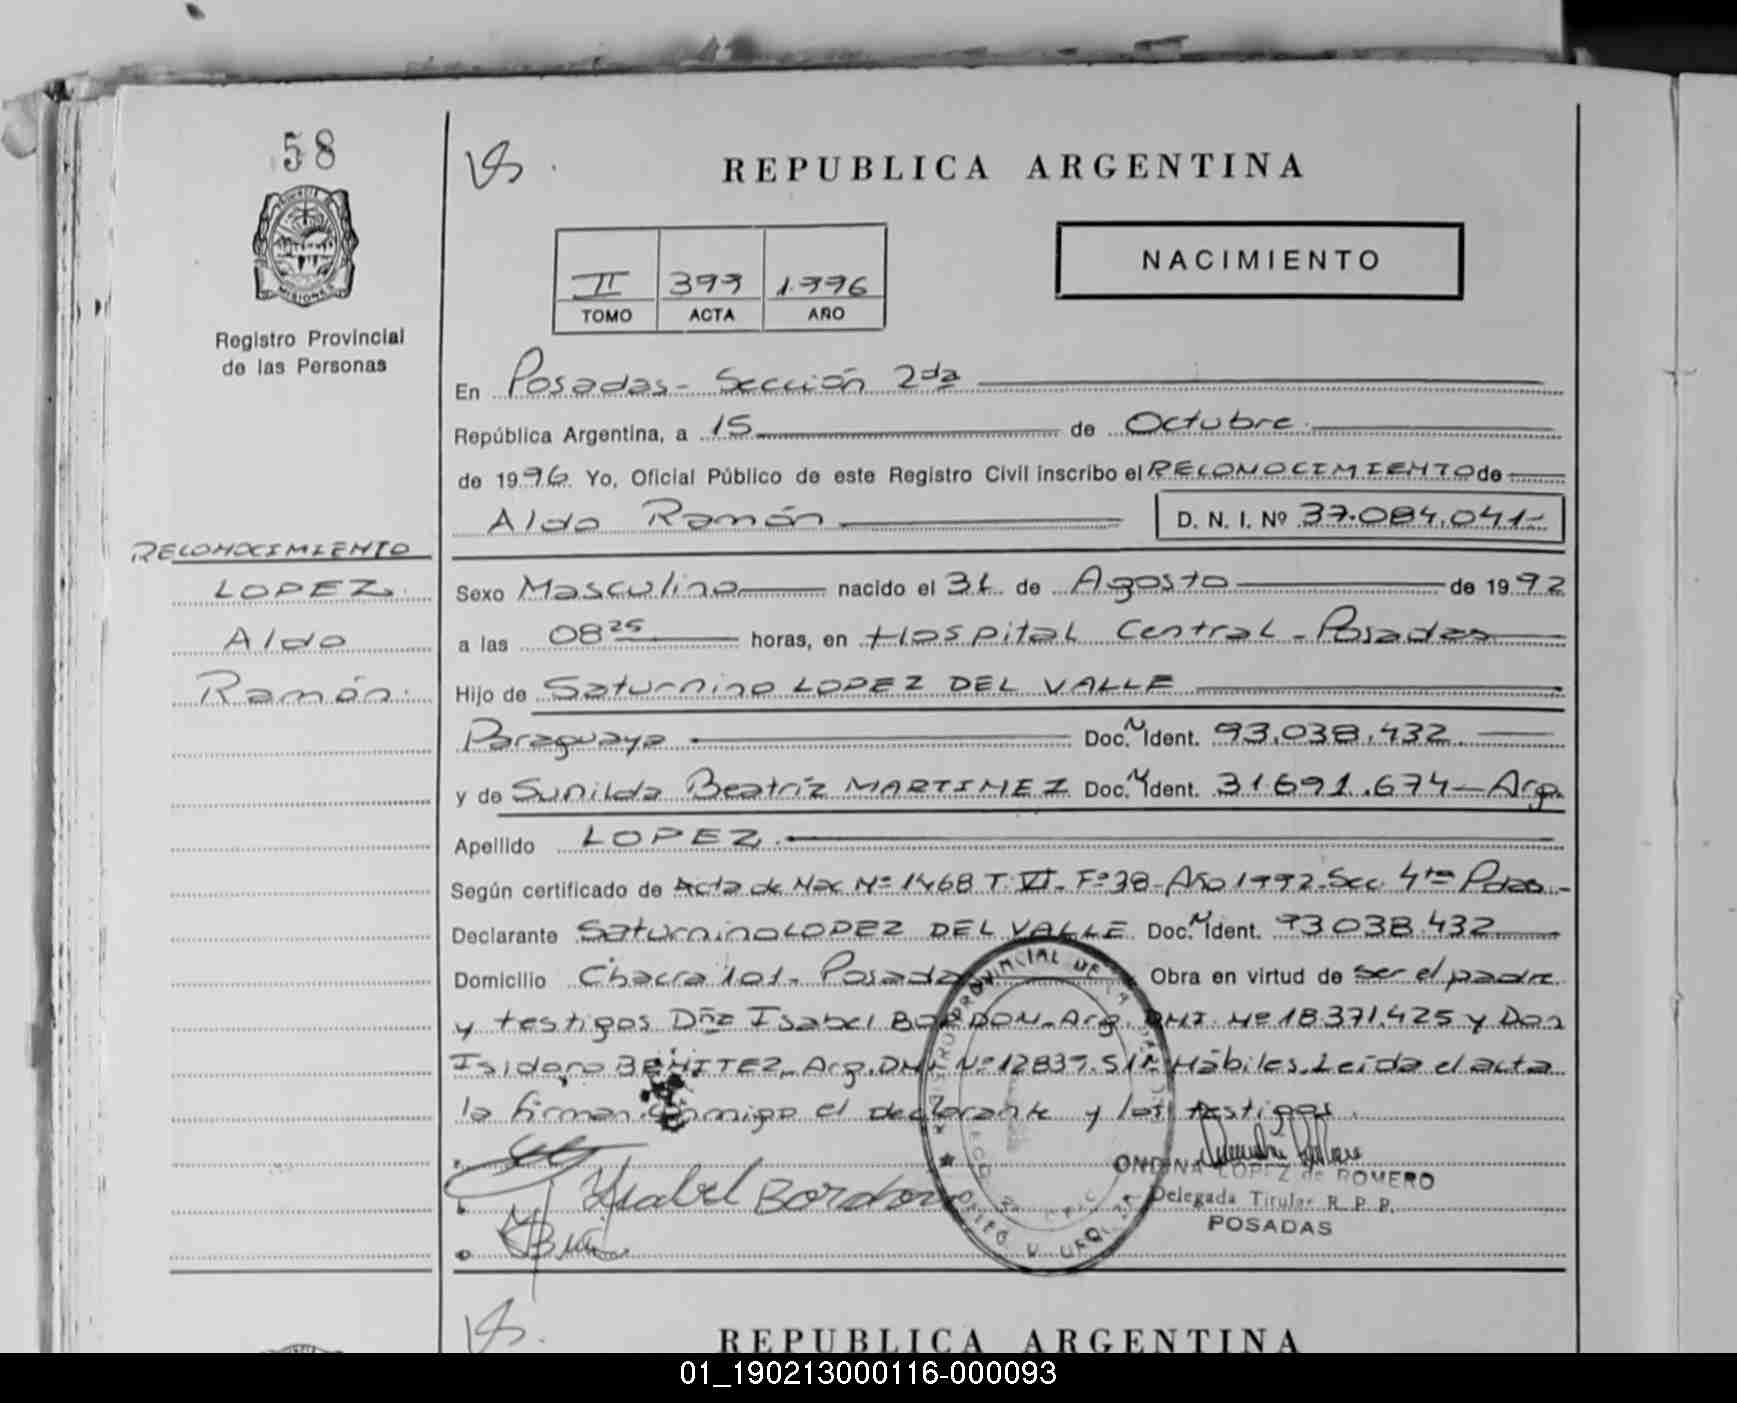 58
REPUBLICA ARGENTINA
NACIMIENTO
II 399 1.996
TOMO ACTA AÑO
MISIONES
Registro Provincial
de las Personas
En Posadas - Sección 2da
República Argentina, a 15 de Octubre
de 1996 Yo, Oficial Público de este Registro Civil inscribo el RECONOCIMIENTO de
Aldo Ramón D. N. I. Nº 37.084.041-
RECONOCIMIENTO
LOPEZ
Aldo
Ramón
Sexo Masculino nacido el 31 de Agosto de 1992
a las 08 25 horas, en Hospital Central - Posadas
Hijo de Saturnino LOPEZ DEL VALLE
Paraguaya Doc. N Ident. 93.038.432
y de Sunilda Beatriz MARTINEZ Doc. N Ident. 31.691.674 - Arg.
Apellido LOPEZ
Según certificado de Acta de Nac Nº 1468 T. VI - Fº 38 - Año 1992 - Sec. 4ta Pdas -
Declarante Saturnino LOPEZ DEL VALLE Doc. N Ident. 93.038.432
Domicilio Chacra 101 - Posadas Obra en virtud de ser el padre
y testigos Dña Isabel BORDON - Arg. DNI. Nº 18.371.425 y Don
Isidoro BENITEZ - Arg. DNI Nº 12837. Hábiles. Leída el acta
la firman conmigo el declarante y los testigos.
Ysabel Bordon
ONDINA LOPEZ de ROMERO
Delegada Titular R. P. P.
POSADAS
REPUBLICA ARGENTINA
01_190213000116-000093